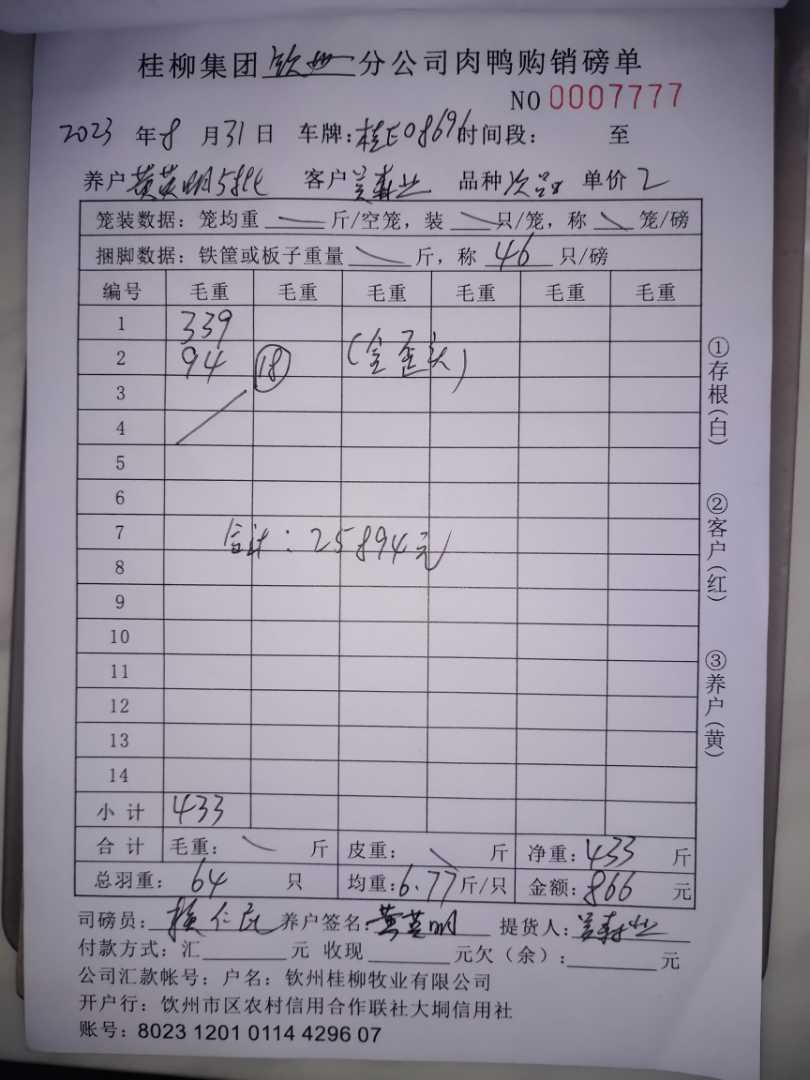 桂柳集团 钦州 分公司肉鸭购销磅单
NO 0007777
2023 年 8 月 31 日 车牌:桂E08696 时间段: 至
养户 黄英明58批 客户 业 品种 次品 单价 2
笼装数据:笼均重 斤/空笼,装 只/笼,称 笼/磅
捆脚数据:铁筐或板子重量 斤,称 46 只/磅
编号 毛重 毛重 毛重 毛重 毛重 毛重
1 339
2 94 18 (全歪头)
3
4
5
6
7 合计:25894元
8
9
10
11
12
13
14
小 计 433
合 计 毛重: 斤 皮重: 斤 净重:433 斤
总羽重: 64 只 均重:6.77 斤/只 金额:866 元
司磅员: 仁 养户签名:黄英明 提货人: 业
付款方式:汇 元 收现 元欠(余): 元
公司汇款帐号:户名:钦州桂柳牧业有限公司
开户行:饮州市区农村信用合作联社大垌信用社
账号:8023 1201 0114 4296 07
①存根(白)
②客户(红)
③养户(黄)